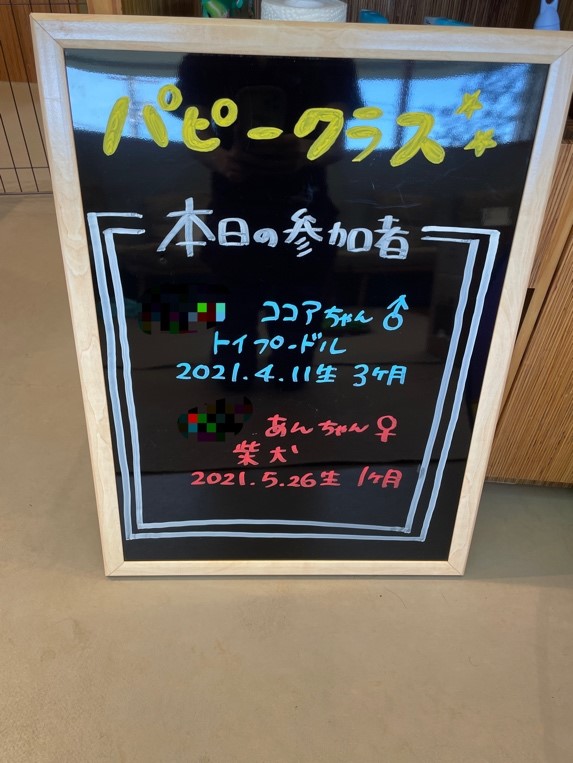 パピークラス
本日の参加者
ココアちゃん♂
トイプードル
2021.4.11生 3ヶ月
あんちゃん♀
柴犬
2021.5.26生 1ヶ月